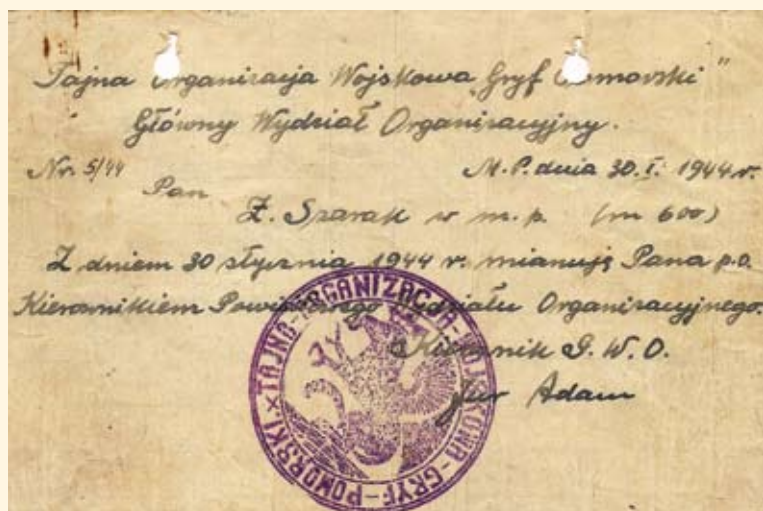 Tajna Organizacja Wojskowa „Gryf Pomorski"
Główny Wydział Organizacyjny.
Nr. 5/44 M. P. dnia 30. I. 1944 r.
Pan
Ż. Szarak w m. p. (m 600)
Z dniem 30 stycznia 1944 r. mianuję Pana p.o.
Kierownikiem Powiatowego Wydziału Organizacyjnego.
Kierownik G. W. O.
Jur Adam
TAJNA-ORGANIZACJA-WOJSKOWA-GRYF-POMORSKI